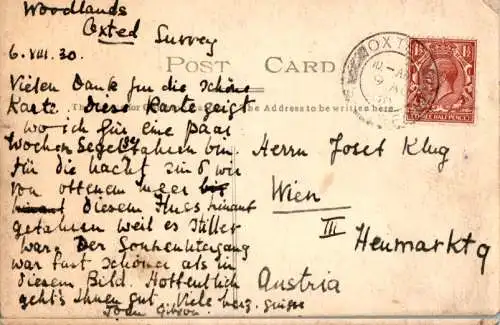 Woodlands
Oxted Surrey
6.VIII.30.
POST CARD
The Address to be written here.
Vielen Dank für die schöne
Karte. Diese Karte zeigt
wo ich für eine paar
Wochen Segelfahren bin.
Für die Nacht sind wir
von offenem Meer bis
hinauf diesem Fluss hinauf
gefahren weil es stiller
war. Der Sonnenuntergang
war fast schöner als in
diesem Bild. Hoffentlich
geht's Ihnen gut. Viele herz. Grüsse
Joan Gibson.
Herrn Josef Klug
Wien
III
Heumarkt 9
Austria
OXTED
THREE HALF PENCE